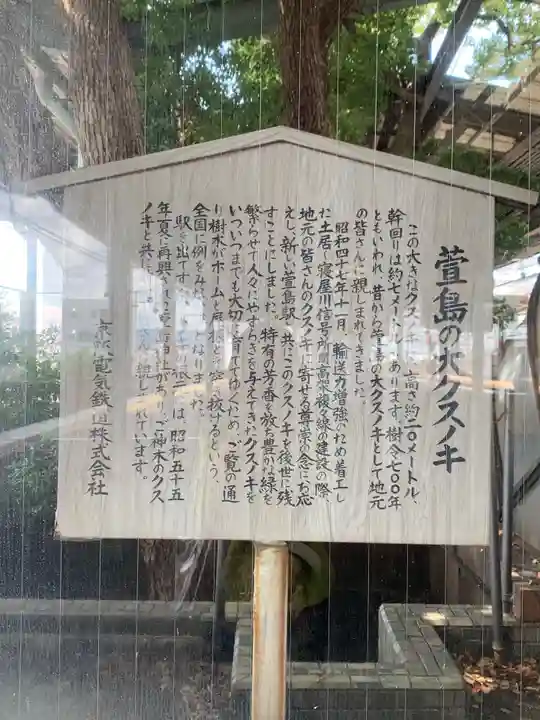 萱島の大クスノキ
この大きなクスノキ 高さ約二〇メートル、
幹回りは約七メートル あります。樹令七〇〇年
ともいわれ、昔から萱島の大クスノキとして地元
の皆さんに親しまれてきました。
昭和四十七年十一月、輸送力増強のため着工し
た土居〜寝屋川信号所間高架複々線の建設の際、
地元の皆さんのクスノキに寄せる尊崇の念にお応
えし、新しい萱島駅と共にこのクスノキを後世に残
すことにしました。特有の芳香を放ち豊かな緑を
繁らせて人々にやすらぎを与えてきたクスノキを
いついつまでも大切に育ててゆくため、ご覧の通
り樹木がホームと屋根を突き抜けるという、
全国に例をみない なりました。
駅を出て は、昭和五十五
年夏に再興され があり、ご神木のクス
ノキと共に 親しまれています。
京阪電気鉄道株式会社